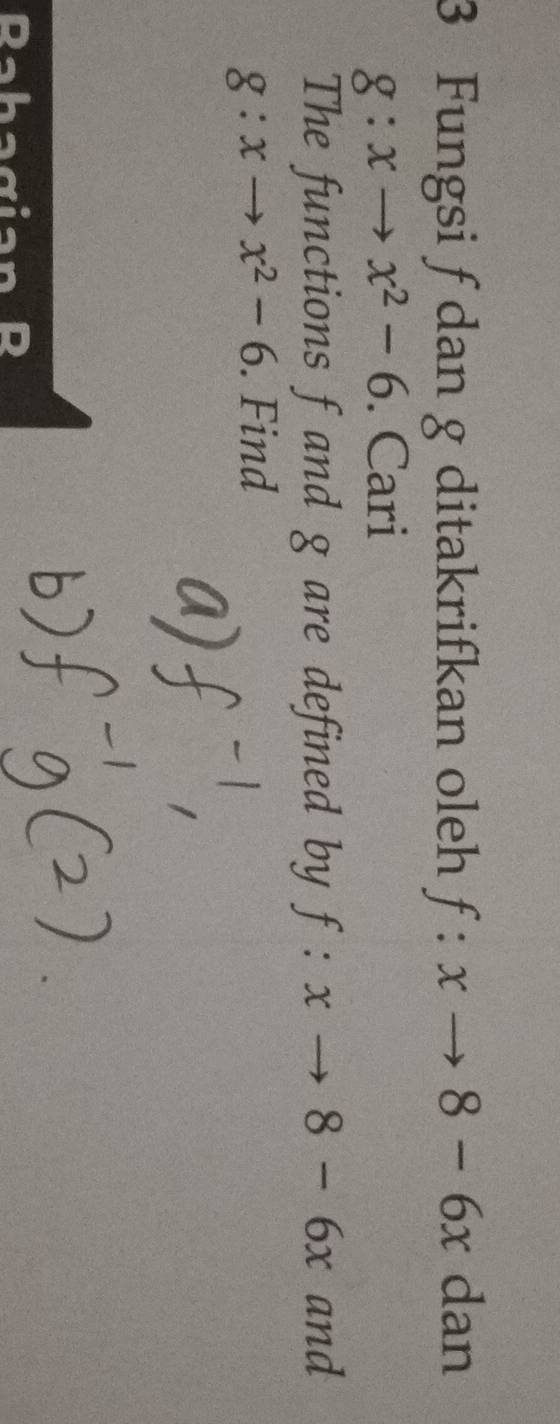 3 Fungsi f dan g ditakrifkan oleh f : x → 8 – 6x dan
g : x → x² – 6. Cari
The functions f and g are defined by f : x → 8 – 6x and
g : x → x² – 6. Find
a) f⁻¹,
b) f⁻¹g(2).
Bahagian B